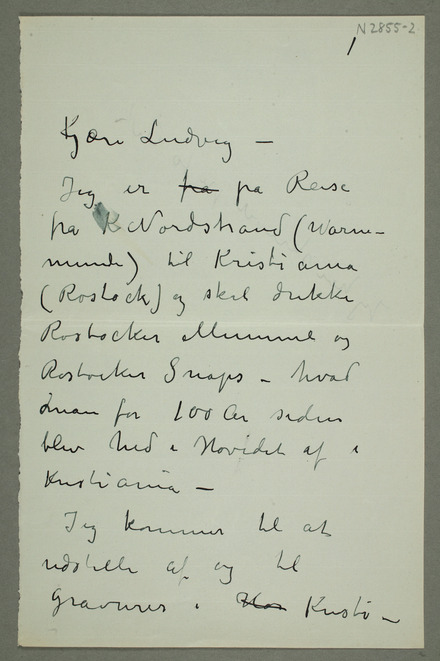 N 2855-2
1
Kjære Ludvig —
Jeg er fra på Reise
fra K Nordstrand (Warne-
münde) til Kristiania
(Rostock) og skal drikke
Rostocker Mumme og
Rostocker Snaps – hvad
man for 100 År siden
blev hed i Hovedet af i
Kristiania —
Jeg kommer til at
udstille af og til
gravurer i Kristi –